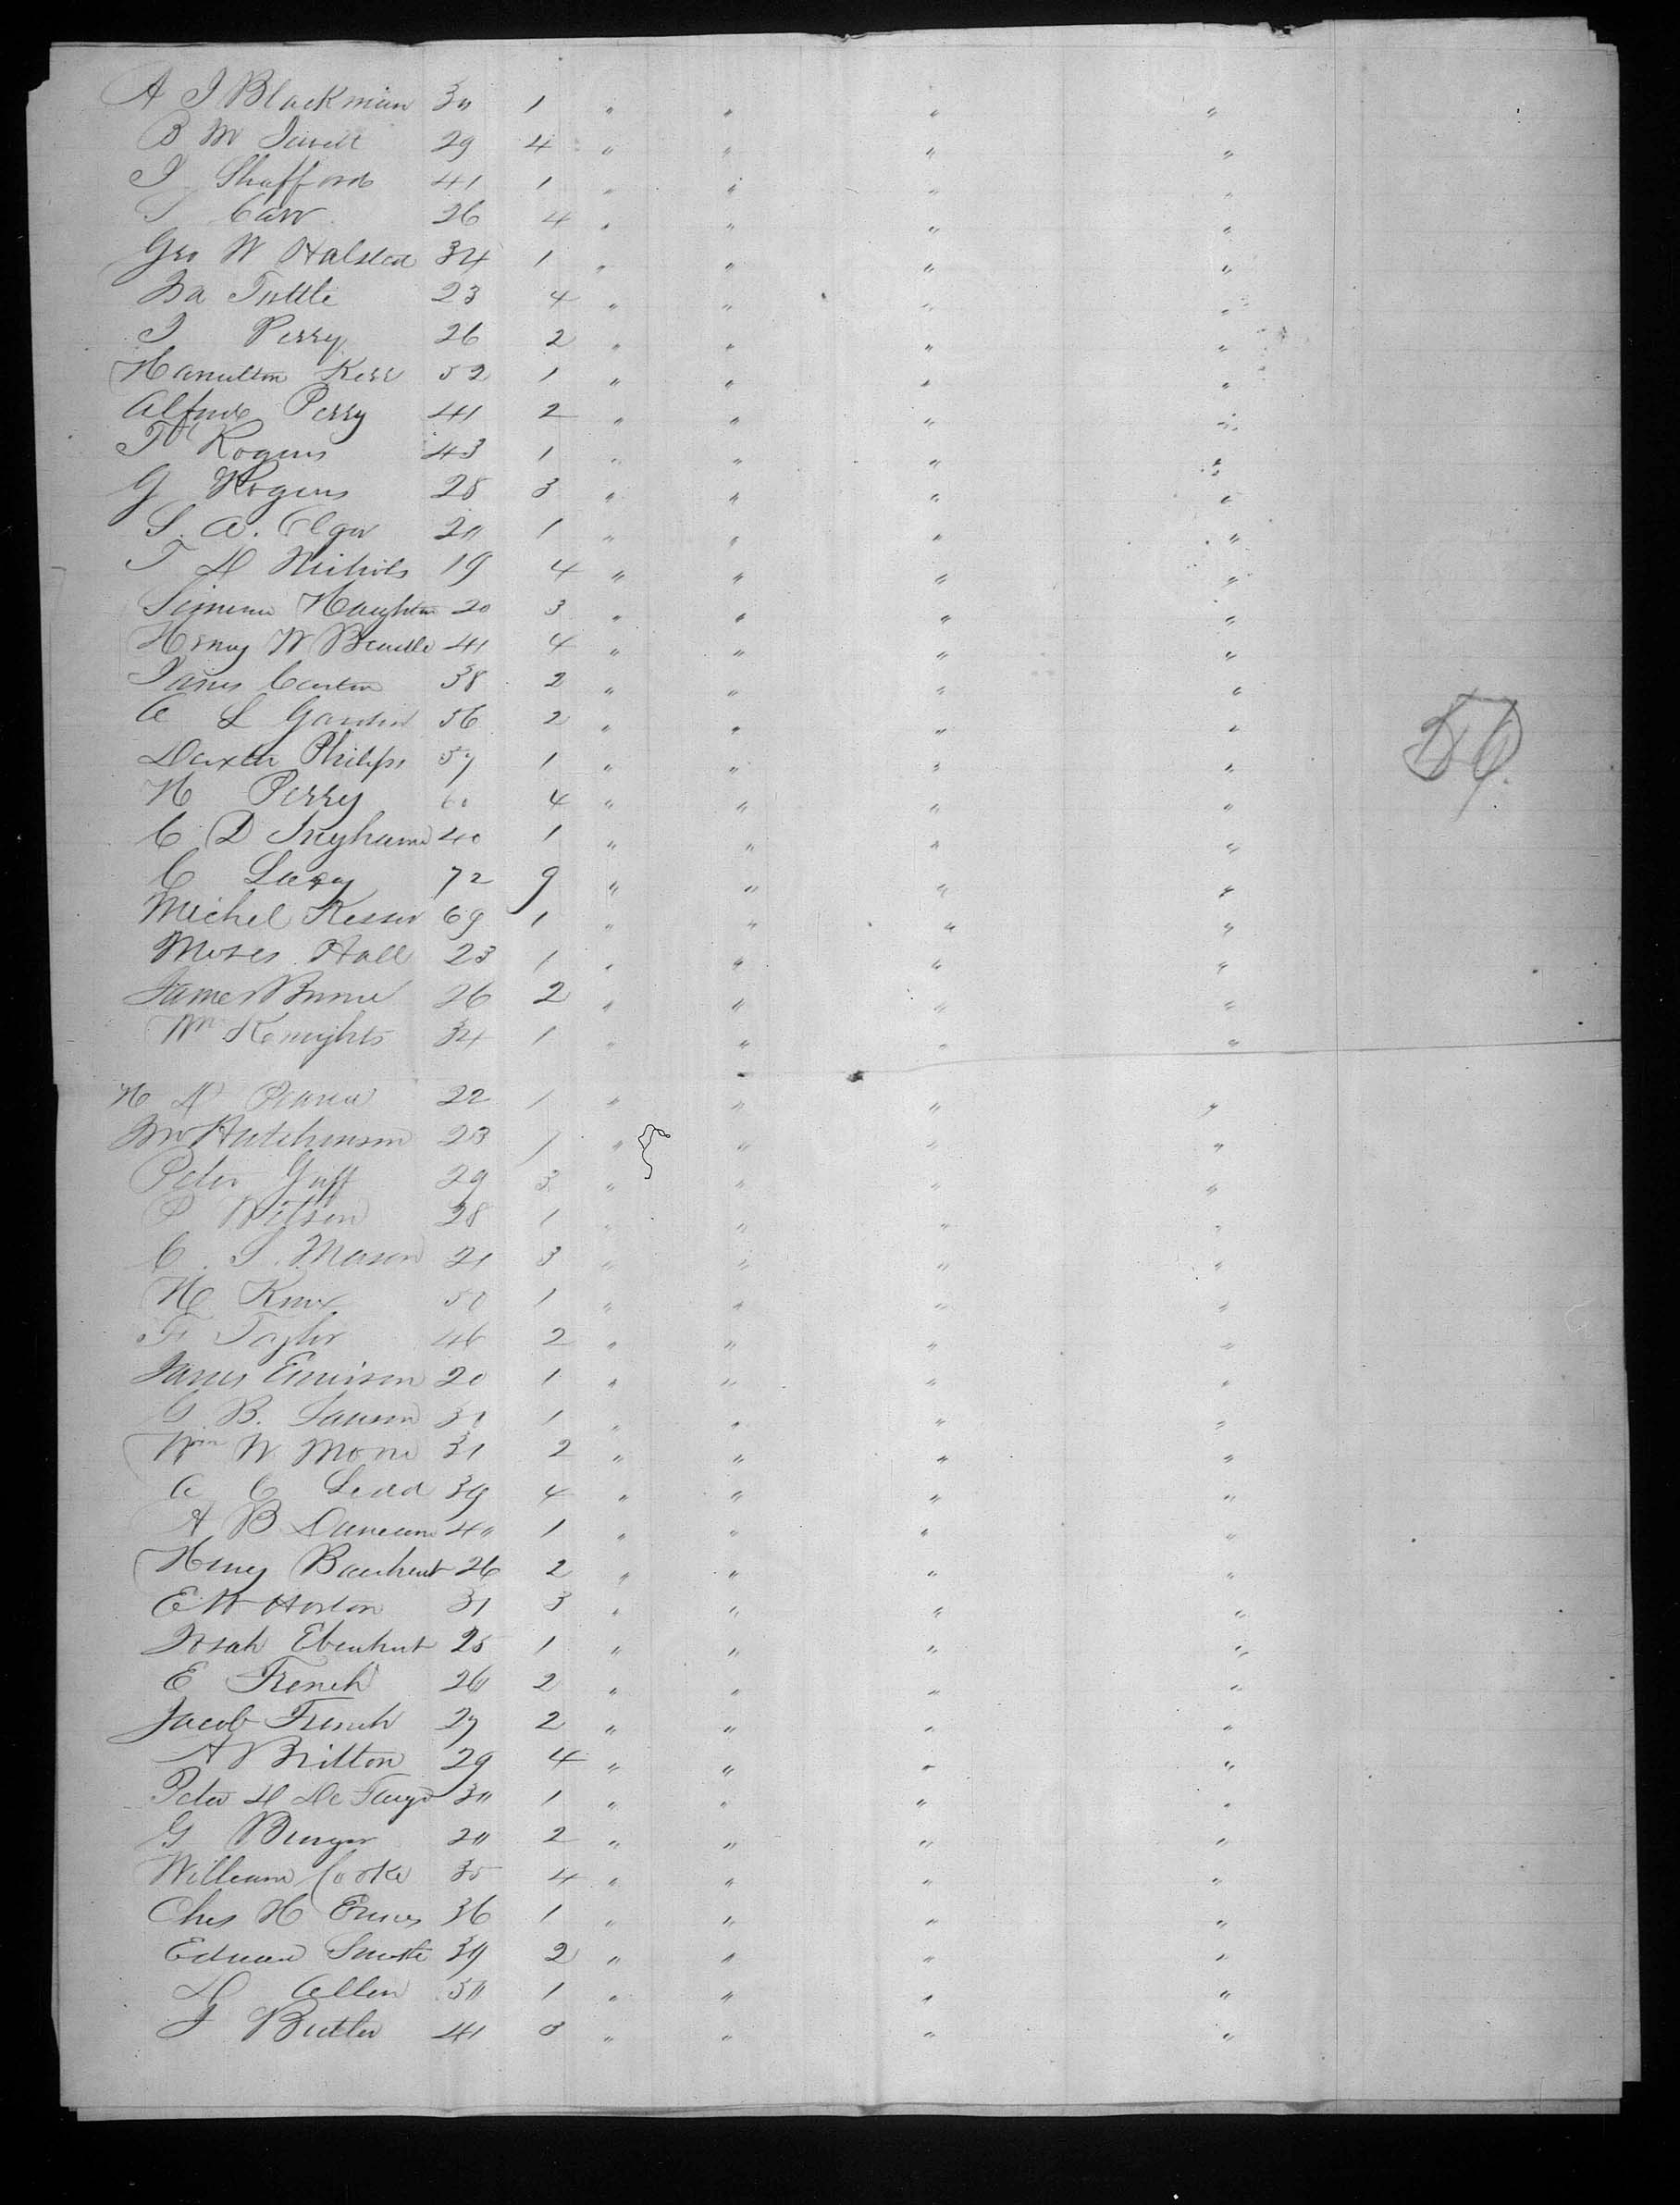 A J Blackman 30 1 " " " "
B M 29 4 " " " "
J Shafford 41 1 " " " "
T Carr 26 4 " " " "
Geo W Halsted 34 1 " " " "
Ira Tuttle 23 4 " " " "
J Perry 26 2 " " " "
Hamilton Kerr 52 1 " " " "
Alfred Perry 41 2 " " " "
Rogers 43 1 " " " "
G Rogers 28 3 " " " "
S. A. 20 1 " " " "
T D Nichols 19 4 " " " "
Simeon Haughton 20 3 " " " "
Henry W 41 4 " " " "
James Carlton 38 2 " " " "
A L 56 2 " " " "
Dexter Philips 57 1 " " " "
H Perry 60 4 " " " "
C D Ingham 40 1 " " " "
C 72 9 " " " "
Michel 69 1 " " " "
Moses Hall 23 1 " " " "
James 26 2 " " " "
Wm Knights 34 1 " " " "
H D 22 1 " " " "
Hutchinson 23 1 " " " "
Peter Goff 29 3 " " " "
P Wilson 28 1 " " " "
C. S. Mason 21 3 " " " "
H Knox 50 1 " " " "
F Taylor 46 2 " " " "
James Emerson 20 1 " " " "
G. B. 30 1 " " " "
Wm W Moore 31 2 " " " "
A C Ladd 39 4 " " " "
A B Duncan 40 1 " " " "
Henry 26 2 " " " "
E W Horton 31 3 " " " "
25 1 " " " "
E French 26 2 " " " "
Jacob French 27 2 " " " "
A Britton 29 4 " " " "
Peter D 30 1 " " " "
G Burger 20 2 " " " "
William Cooke 35 4 " " " "
Chas H 36 1 " " " "
Edward 39 2 " " " "
D Allen 50 1 " " " "
J Butler 41 3 " " " "